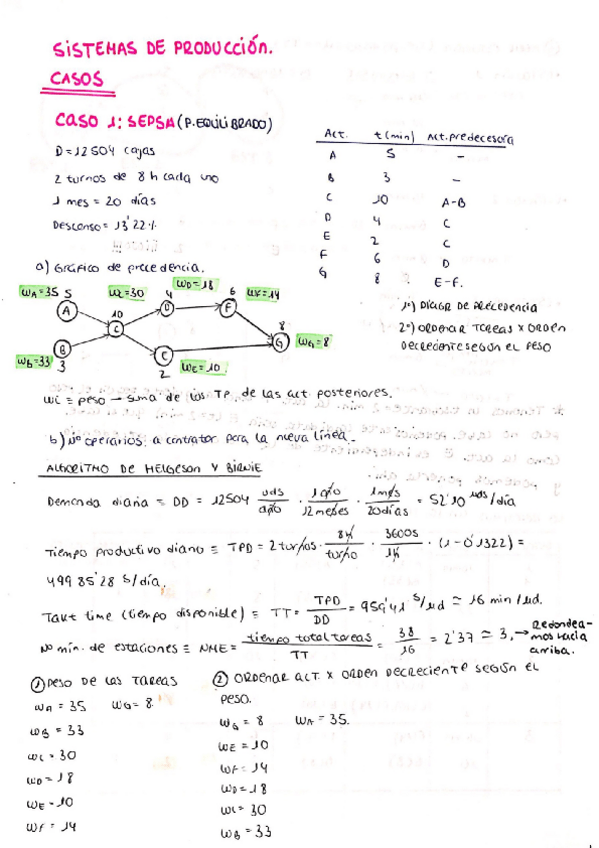 SISTEMAS DE PRODUCCIÓN.
CASOS
CASO 1: SEPSA (P. EQUILIBRADO)
D = 12504 cajas
2 turnos de 8 h cada uno
1 mes = 20 días
Descanso = 13'22 %
Act. t (min) Act. predecesora
A 5 -
B 3 -
C 10 A-B
D 4 C
E 2 C
F 6 D
G 8 E-F.
a) Gráfico de precedencia.
WA=35 5 WC=30 WD=18 4 6 WF=14
A 10 D F
C 8
B G WG=8
WB=33 3 E 2 WE=10
1º) DIAGR DE PRECEDENCIA
2º) ORDENAR TAREAS X ORDEN
DECRECIENTE SEGÚN EL PESO
Wi = peso → suma de los TP de las act. posteriores.
b) Nº operarios a contratar para la nueva línea.
ALGORITMO DE HELGESON Y BIRNIE
Demanda diaria = DD = 12504 uds/año · 1 año/12 meses · 1 mes/20 días = 52'10 uds/día
Tiempo productivo diario ≡ TPD = 2 turnos · 8h/turno · 3600s/1h · (1-0'1322) =
49985'28 s/día.
Takt time (tiempo disponible) ≡ TT = TPD/DD = 959'41 s/ud ≃ 16 min/ud.
Nº mín. de estaciones ≡ NME = tiempo total tareas/TT = 38/16 = 2'37 ≃ 3, → Redondeamos hacia arriba.
① PESO DE LAS TAREAS
WA = 35 WG = 8
WB = 33
WC = 30
WD = 18
WE = 10
WF = 14
② ORDENAR ACT X ORDEN DECRECIENTE SEGÚN EL
PESO.
WG = 8 WA = 35.
WE = 10
WF = 14
WD = 18
WC = 30
WB = 33